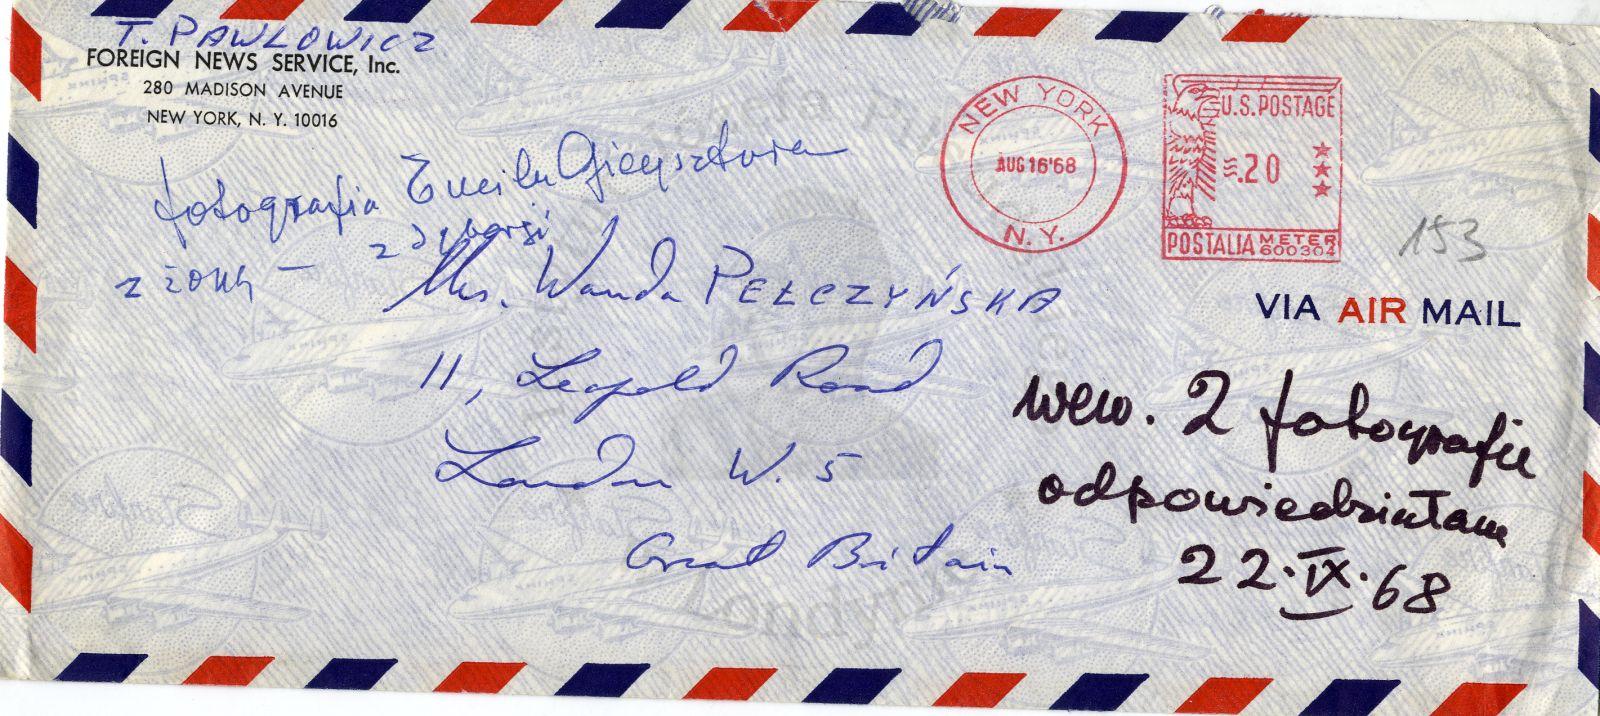 T. PAWLOWICZ
FOREIGN NEWS SERVICE, Inc.
280 MADISON AVENUE
NEW YORK, N. Y. 10016
NEW YORK
AUG 16'68
N. Y.
U.S. POSTAGE
.20
POSTALIA METER 600304
153
VIA AIR MAIL
fotografia Emila Gieysztora
z żoną –
Mrs. Wanda PEŁCZYŃSKA
11, Leopold Road
London W. 5
Great Britain
wew. 2 fotografie
odpowiedziałam
22·IX·68